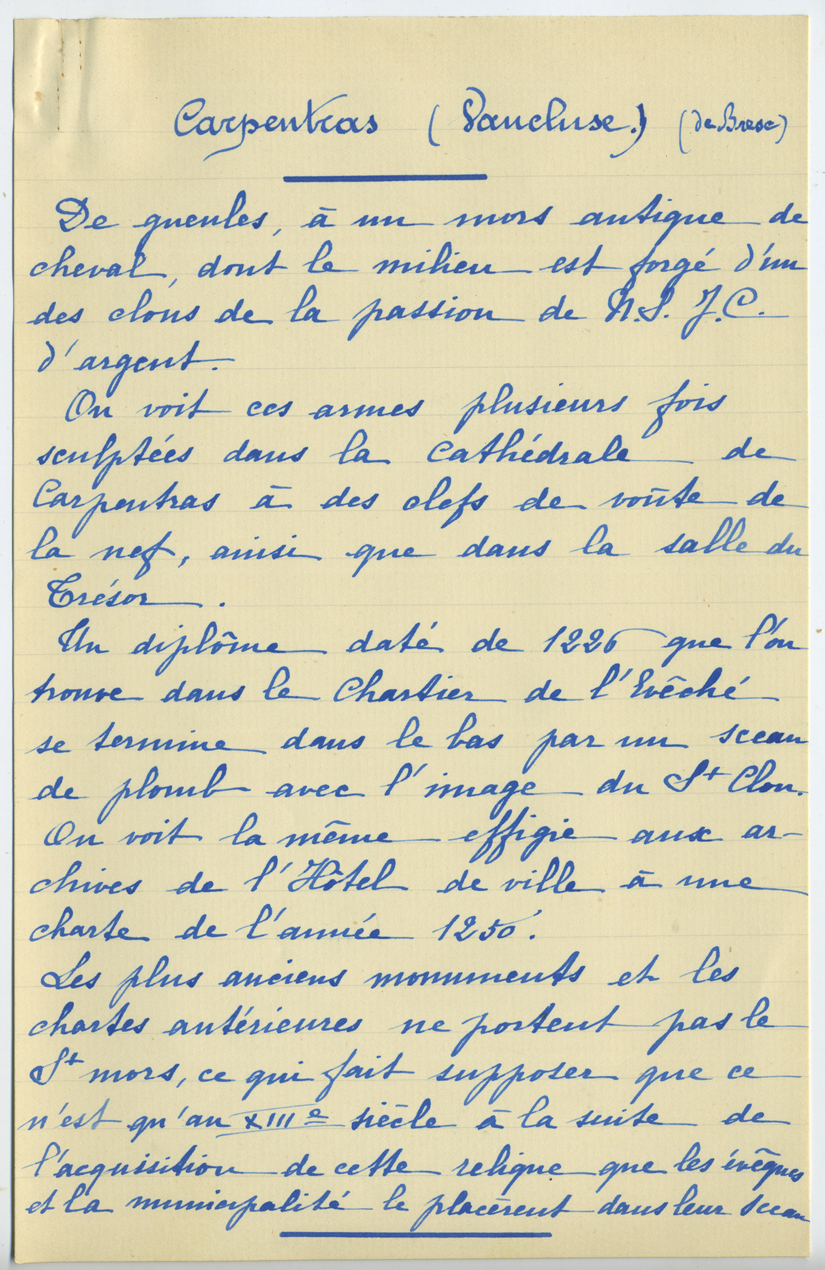 Carpentras (Vaucluse.) (de Bresc)
De gueules, à un mors antique de
cheval, dont le milieu est forgé d'un
des clous de la passion de N.S. J.C.
d'argent.
On voit ces armes plusieurs fois
sculptées dans la Cathédrale de
Carpentras à des clefs de voûte de
la nef, ainsi que dans la salle du
Trésor.
Un diplôme daté de 1226 que l'on
trouve dans le Chartier de l'Evêché
se termine dans le bas par un sceau
de plomb avec l'image du St Clou.
On voit la même effigie aux ar-
chives de l'Hôtel de ville à une
charte de l'année 1250.
Les plus anciens monuments et les
chartes antérieures ne portent pas le
St mors, ce qui fait supposer que ce
n'est qu'au XIIIe siècle à la suite de
l'acquisition de cette relique que les évêques
et la municipalité le placèrent dans leur sceau